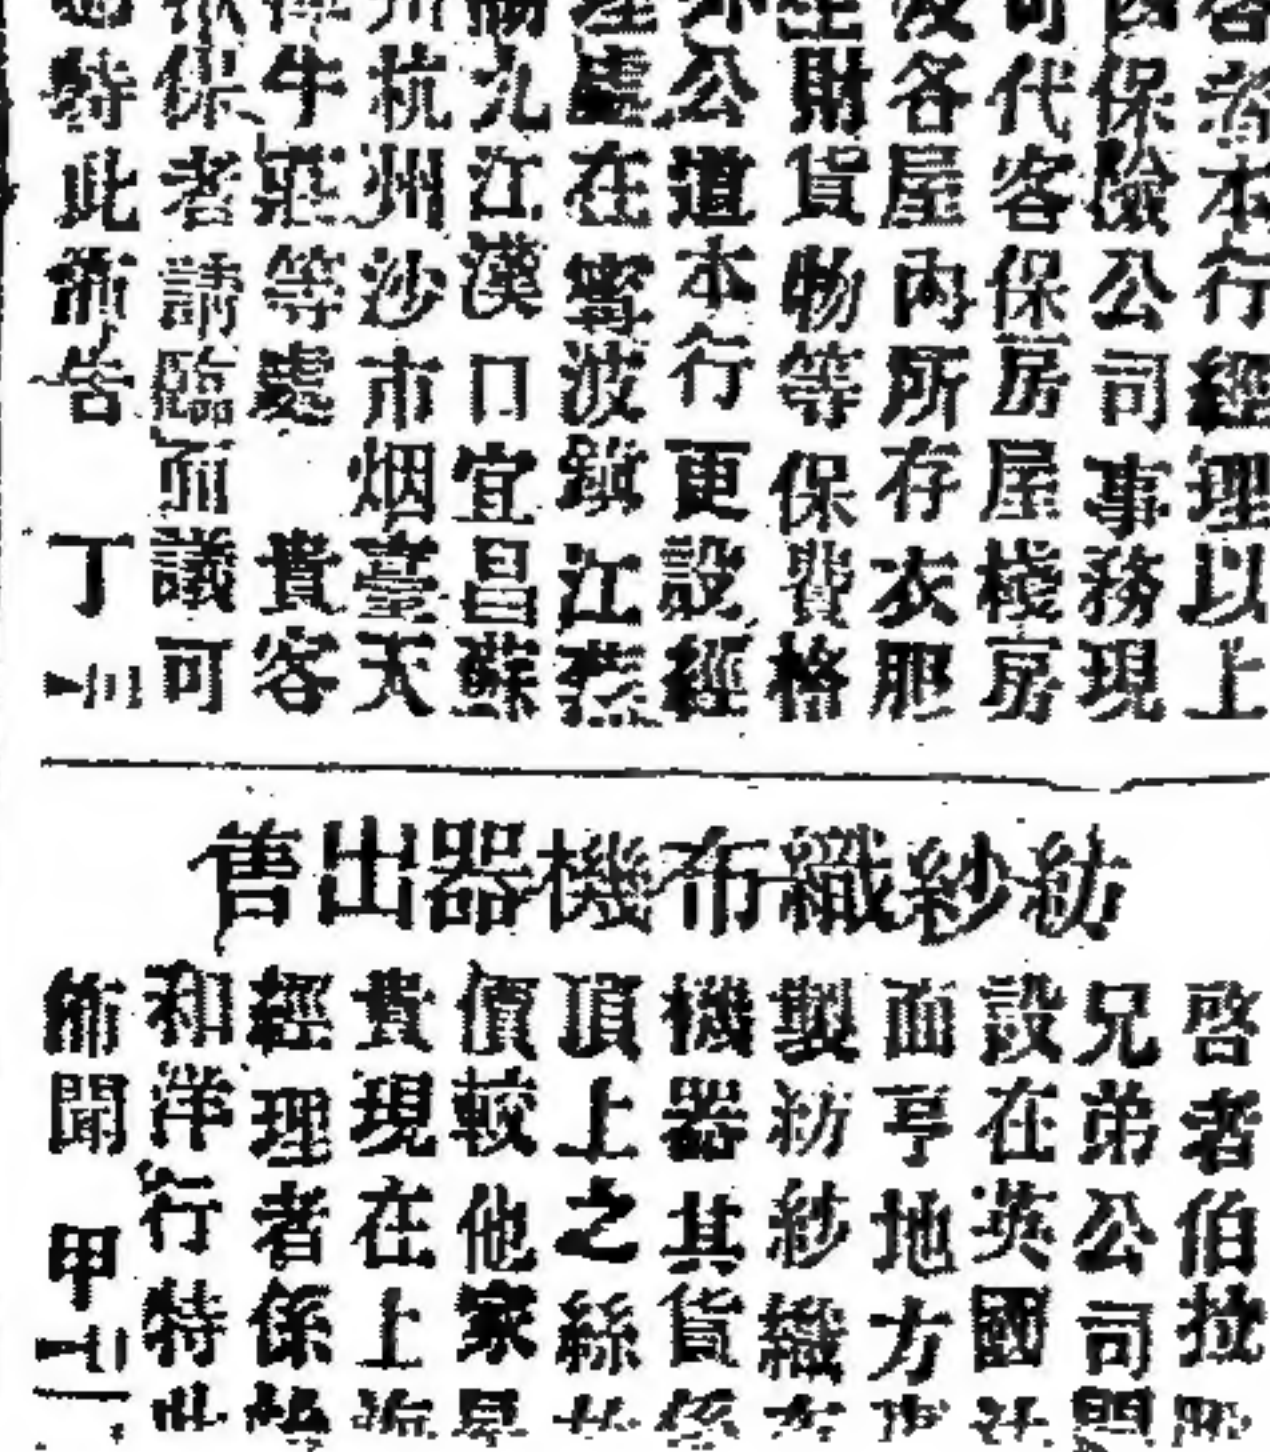 者本行經理以上
保險公司事務現
代客保房屋棧房
各屋內所存衣服
財貨物等保費格
公道本行更設經
處在寧波鎮江蕪
九江漢口宜昌蘇
杭州沙市烟臺天
牛莊等處 貴客
保者請臨面議可
特此佈告 丁
紡紗織布機器出售
啓者伯拉
兄弟公司
設在英國
面亨地方
製紡紗織
機器其貨
頂上之絲
價較他家
貴現在上
經理者係
和洋行特
佈聞 甲